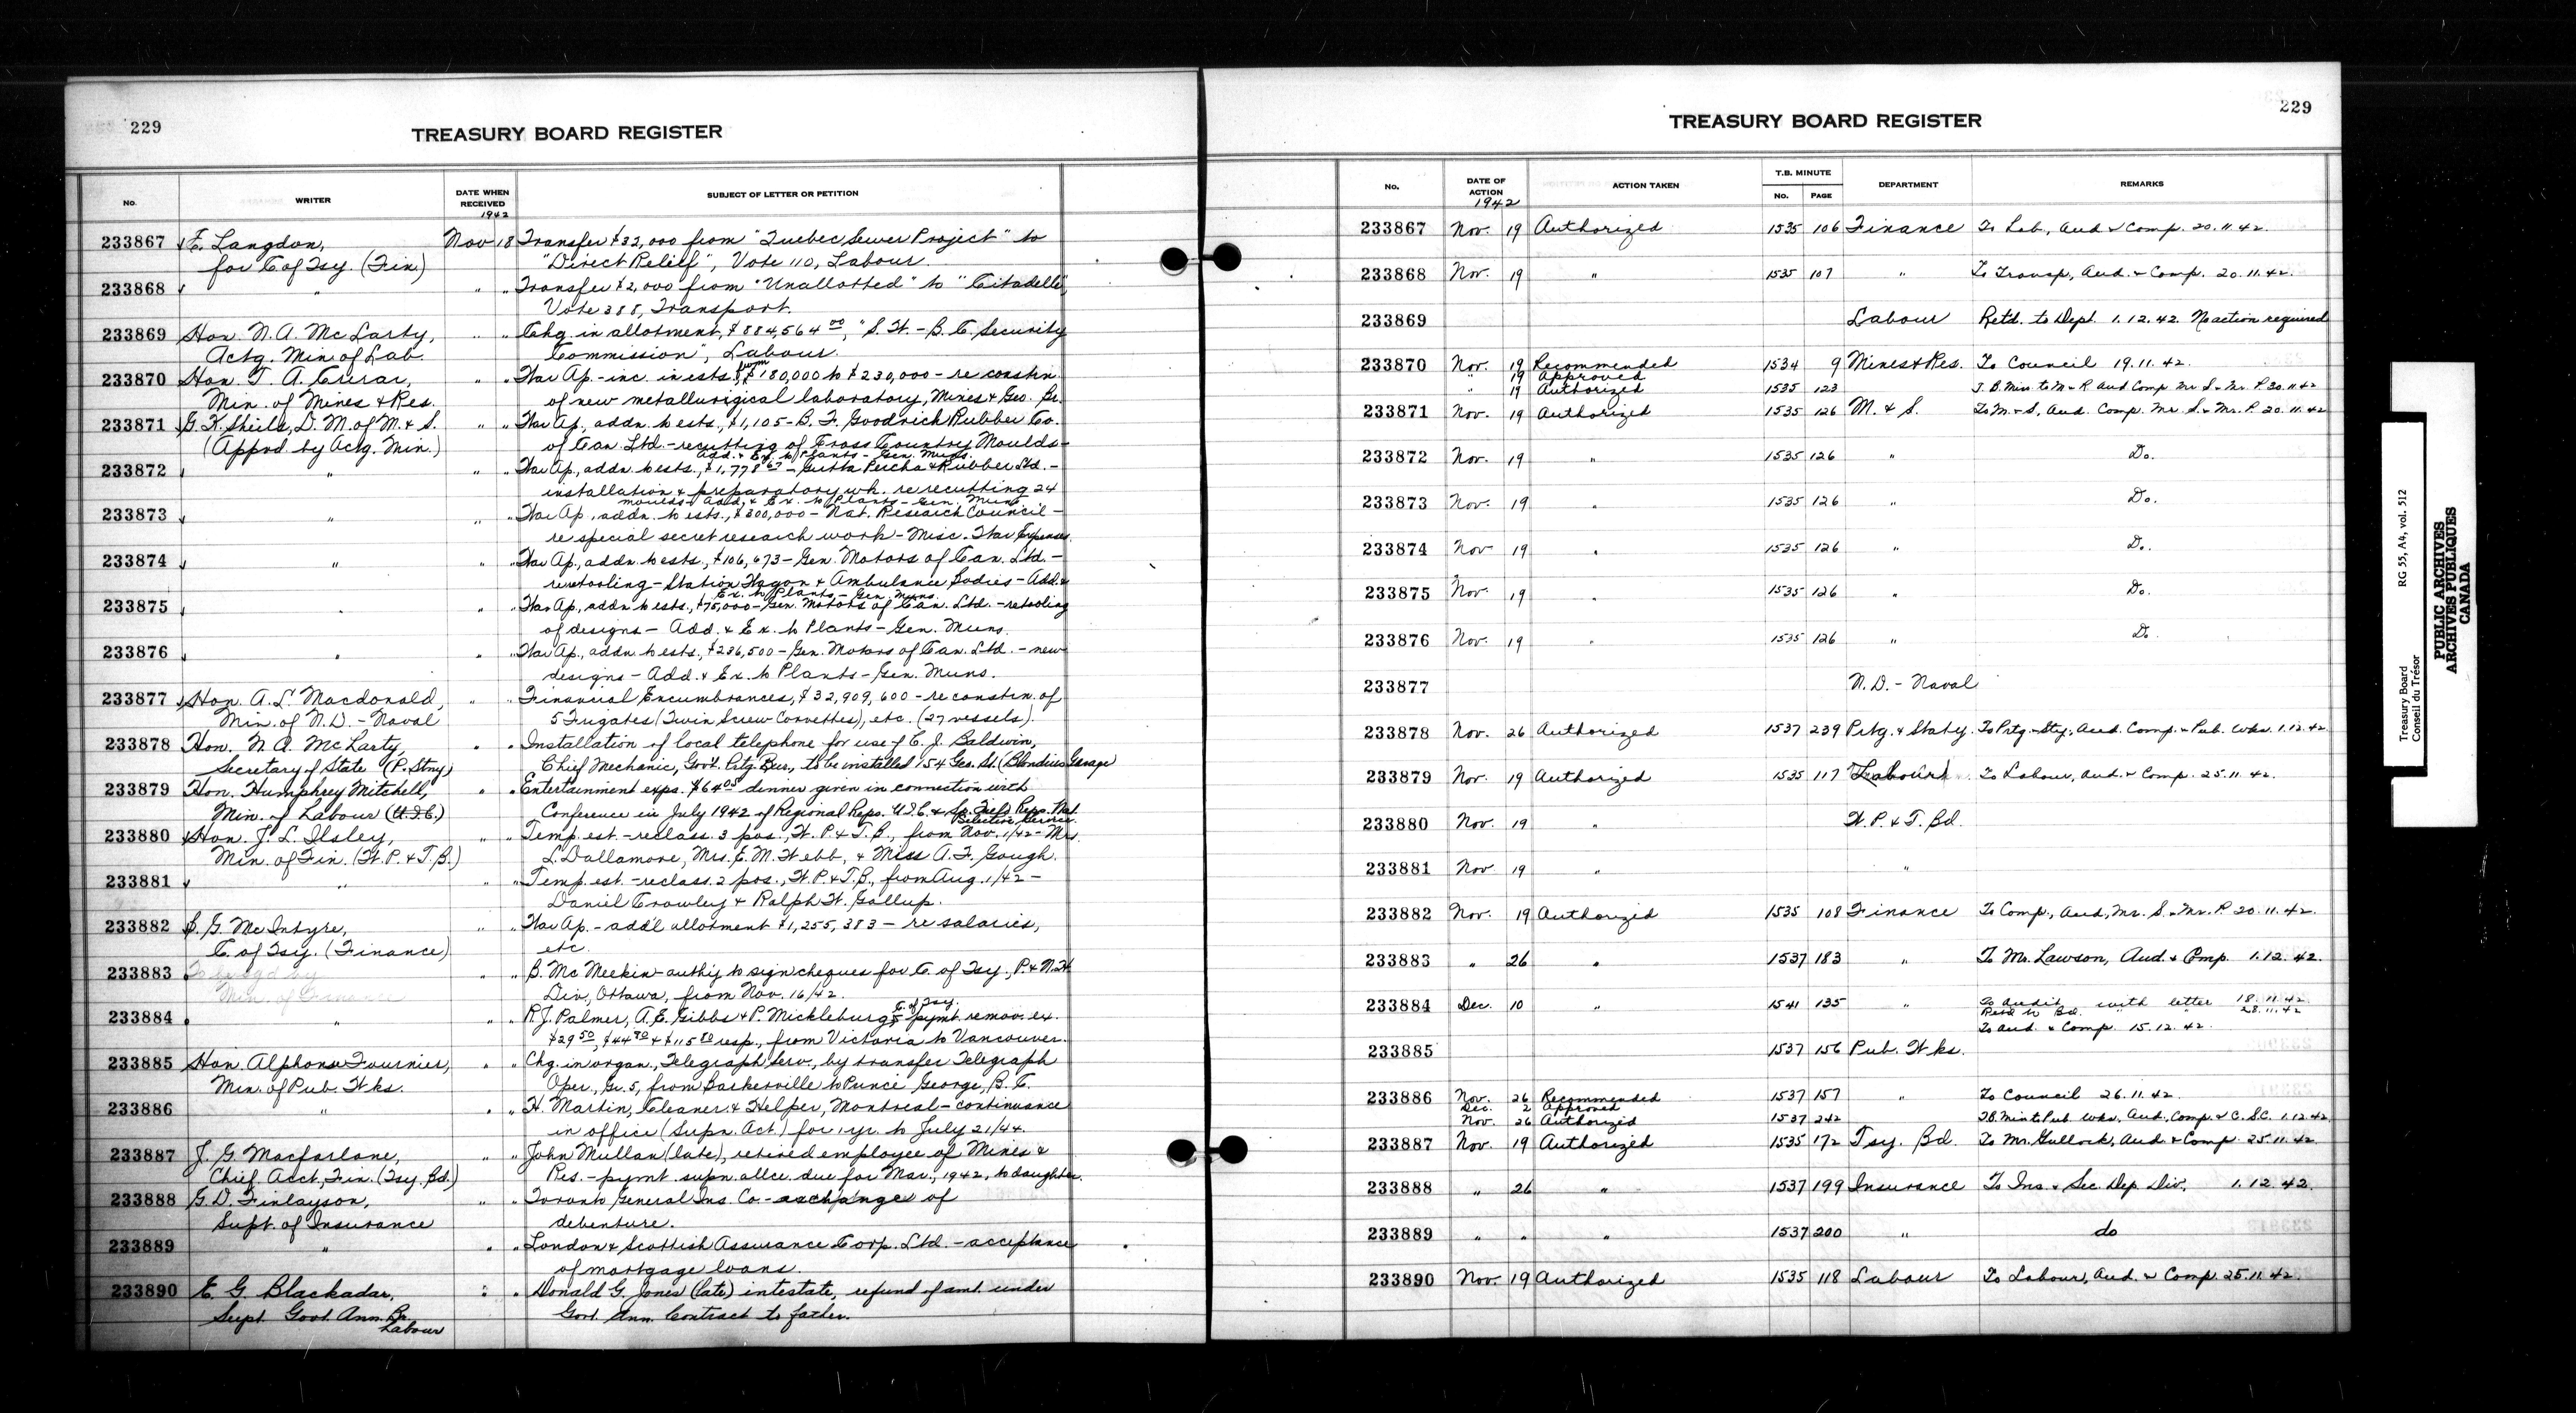 229
TREASURY BOARD REGISTER
No. WRITER DATE WHEN RECEIVED 1942 SUBJECT OF LETTER OR PETITION
233867 E. Langdon, Nov 18 Transfer $32,000 from "Quebec Sewer Project" to
for C. of Tsy. (Fin.) "Direct Relief", Vote 110, Labour.
233868 " " " Transfer $2,000 from "Unallotted" to "Citadelle",
Vote 388, Transport.
233869 Hon. N. A. McLarty, " " Chg. in allotment, $884,564.00, "S. W. - B. C. Security
Actg. Min. of Lab. Commission", Labour.
233870 Hon. T. A. Crerar, " " War Ap. - inc. in ests. from $180,000 to $230,000 - re constrn.
Min. of Mines & Res. of new metallurigical laboratory, Mines & Geo. Br.
233871 G. K. Shiels, D. M. of M. & S. " " War Ap., addn. to ests., $1,105 - B. F. Goodrich Rubber Co.
(Apprd. by Actg. Min.) of Can. Ltd. - recutting of Cross Country Moulds -
Add. & Ex. to Plants - Gen. Muns.
233872 " " " War Ap., addn. to ests., $1,778.67 - Gutta Percha & Rubber Ltd. -
installation & preparatory wk. re recutting 24
moulds - Add. & Ex. to Plants - Gen. Muns.
233873 " " " War Ap., addn. to ests., $300,000 - Nat. Research Council -
re special secret research work - Misc. War Expenses.
233874 " " " War Ap., addn. to ests., $106,673 - Gen. Motors of Can. Ltd. -
retooling - Station Wagon & Ambulance Bodies - Add. &
Ex. to Plants - Gen. Muns.
233875 " " " War Ap., addn. to ests., $75,000 - Gen. Motors of Can. Ltd. - retooling
of designs - Add. & Ex. to Plants - Gen. Muns.
233876 " " " War Ap., addn. to ests., $236,500 - Gen. Motors of Can. Ltd. - new
designs - Add. & Ex. to Plants - Gen. Muns.
233877 Hon. A. L. Macdonald, " " Financial Encumbrances, $32,909,600 - re constrn. of
Min. of N.D. - Naval 5 Frigates (Twin Screw Corvettes), etc. (27 vessels).
233878 Hon. N. A. McLarty, " " Installation of local telephone for use of C. J. Baldwin,
Secretary of State (P. Stny) Chief Mechanic, Gov't. Ptg. Bur., to be installed 154 Geo. St. (Blondins Garage)
233879 Hon. Humphrey Mitchell, " " Entertainment exps. $64.05 dinner given in connection with
Min. of Labour (U.I.C.) Conference in July 1942 of Regional Reps. U.I.C. & Sr. Field Reps. Nat.
Selective Service.
233880 Hon. J. L. Ilsley, " " Temp. est. - reclass. 3 pos., W. P. & T. B., from Nov. 1/42 - Mr.
Min. of Fin. (W. P. & T. B.) L. Dallamore, Mrs. E. M. Webb, & Miss A. F. Gough.
233881 " " " Temp. est. - reclass. 2 pos., W. P. & T. B., from Aug. 1/42 -
Daniel Crowley & Ralph W. Gallup.
233882 B. G. McIntyre, " " War Ap. - add'l allotment $1,255,383 - re salaries,
C. of Tsy. (Finance) etc.
233883 " " B. McMeekin - auth'y to sign cheques for C. of Tsy., P. & N. H.
Min. of Finance Div., Ottawa, from Nov. 16/42.
233884 " " " R. J. Palmer, A. E. Gibbs & P. Mickleburg, C. of Tsy. - pymt. remov. ex.
$29.50, $44.80 & $115.80 resp., from Victoria to Vancouver.
233885 Hon. Alphonse Fournier, " " Chg. in organ., Telegraph Serv., by transfer Telegraph
Min. of Pub. Wks. Oper., Gr. 5, from Barkerville to Prince George, B. C.
233886 " " " H. Martin, Cleaner & Helper, Montreal - continuance
in office (Supn. Act) for 1 yr. to July 21/44.
233887 J. G. Macfarlane, " " John Mullan (late), retired employee of Mines &
Chief Acct., Fin. (Tsy. Bd.) Res. - pymt. supn. allce. due for Mar., 1942, to daughter.
233888 G. D. Finlayson, " " Toronto General Ins. Co. - exchange of
Supt. of Insurance debenture.
233889 " " " London & Scottish Assurance Corp. Ltd. - acceptance
of mortgage loans.
233890 E. G. Blackadar, " " Donald G. Jones (late) intestate, refund of amt. under
Supt. Govt. Ann. Br. Govt. Ann. Contract to father.
Labour
229
TREASURY BOARD REGISTER
No. DATE OF ACTION 1942 ACTION TAKEN T.B. MINUTE No. PAGE DEPARTMENT REMARKS
233867 Nov. 19 Authorized 1535 106 Finance To Lab., Aud & Comp. 20.11.42.
233868 Nov. 19 " 1535 107 " To Transp., Aud. & Comp. 20.11.42.
233869 Labour Retd. to Dept. 1.12.42. No action required
233870 Nov. 19 Recommended 1534 9 Mines & Res. To Council 19.11.42.
" 19 Approved
" 19 Authorized 1535 123 T.B. Min. to M. & R. Aud Comp Mr. S. & Mr. P. 20.11.42
233871 Nov. 19 Authorized 1535 126 M. & S. To M. & S., Aud. Comp. Mr. S. & Mr. P. 20.11.42
233872 Nov. 19 " 1535 126 " Do.
233873 Nov. 19 " 1535 126 " Do.
233874 Nov 19 " 1535 126 " Do.
233875 Nov. 19 " 1535 126 " Do.
233876 Nov. 19 " 1535 126 " Do.
233877 N.D. - Naval
233878 Nov. 26 Authorized 1537 239 Prtg. & Staty. To Prtg. & Sty., Aud. Comp. & Pub. Wks. 1.12.42.
233879 Nov. 19 Authorized 1535 117 Labour To Labour, Aud. & Comp. 25.11.42.
233880 Nov. 19 " W. P. & T. Bd.
233881 Nov 19 " "
233882 Nov. 19 Authorized 1535 108 Finance To Comp., Aud., Mr. S. & Mr. P. 20.11.42.
233883 " 26 " 1537 183 " To Mr. Lawson, Aud. & Comp. 1.12.42.
233884 Dec. 10 " 1541 135 " To Audit with letter 18.11.42.
Retd to Bd. " " 28.11.42
To Aud. & Comp. 15.12.42.
233885 1537 156 Pub. Wks.
233886 Nov. 26 Recommended 1537 157 " To Council 26.11.42.
Dec. 2 Approved
Nov. 26 Authorized 1537 242 T.B. Min to Pub. Wks., Aud., Comp. & C.S.C. 1.12.42
233887 Nov. 19 Authorized 1535 172 Tsy. Bd. To Mr. Gullock, Aud. & Comp. 25.11.42
233888 " 26 " 1537 199 Insurance To Ins. & Sec. Dep. Div. 1.12.42.
233889 " " " 1537 200 " do
233890 Nov. 19 Authorized 1535 118 Labour To Labour, Aud. & Comp. 25.11.42.
Treasury Board RG 55, A4, vol. 512
Conseil du Trésor
PUBLIC ARCHIVES
ARCHIVES PUBLIQUES
CANADA